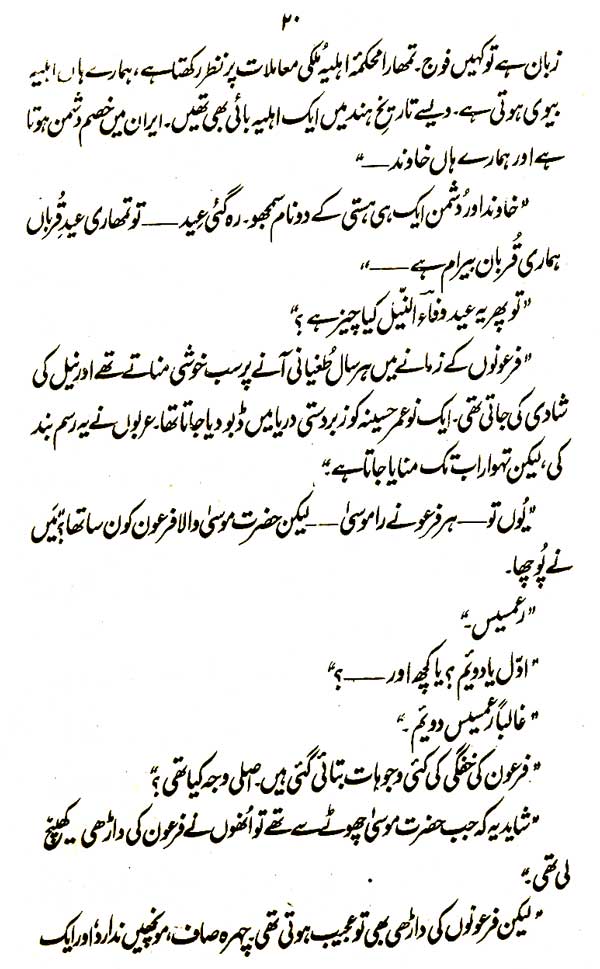 ۲۰
زبان ہے تو کہیں فوج۔ تمھارا محکمۂ اہلیہ مُلکی معاملات پر نظر رکھتا ہے، ہمارے ہاں اہلیہ
بیوی ہوتی ہے۔ ویسے تاریخِ ہند میں ایک اہلیہ بائی بھی تھیں۔ ایران میں خصم دشمن ہوتا
ہے اور ہمارے ہاں خاوند ——“
”خاوند اور دُشمن ایک ہی ہستی کے دو نام سمجھو۔ رہ گئی عید —— تو تمھاری عیدِ قُرباں
ہماری قُربان بیرام ہے ——“
”تو پھر یہ عید وفاءالنّیل کیا چیز ہے؟“
”فرعونوں کے زمانے میں ہر سال طُغیانی آنے پر سب خوشی مناتے تھے اور نیل کی
شادی کی جاتی تھی۔ ایک نو عمر حسینہ کو زبردستی دریا میں ڈبو دیا جاتا تھا۔ عربوں نے یہ رسم بند
کی، لیکن تہوار اب تک منایا جاتا ہے۔“
”یُوں تو —— ہر فرعونے را موسیٰ —— لیکن حضرت موسیٰ والا فرعون کون سا تھا؟“ مَیں
نے پُوچھا۔
”رعمسیس۔“
”اوّل یا دویُم؟ یا کچھ اور ——؟“
”غالباً رعمسیس دویُم۔“
”فرعون کی خفگی کی کئی وجوہات بتائی گئی ہیں۔ اصلی وجہ کیا تھی؟“
”شاید یہ کہ جب حضرت موسیٰ چھوٹے سے تھے تو اُنھوں نے فرعون کی داڑھی کھینچ
لی تھی۔“
”لیکن فرعونوں کی داڑھی بھی تو عجیب ہوتی تھی۔ چہرہ صاف، مونچھیں ندارد اور ایک